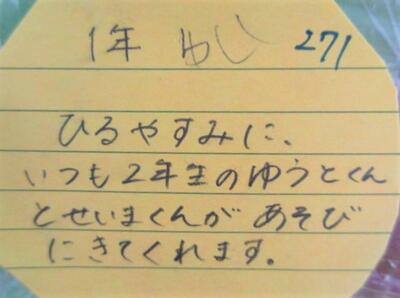 1年 ゆい 271
ひるやすみに、
いつも2年生のゆうとくん
とせいまくんが あそび
にきてくれます。